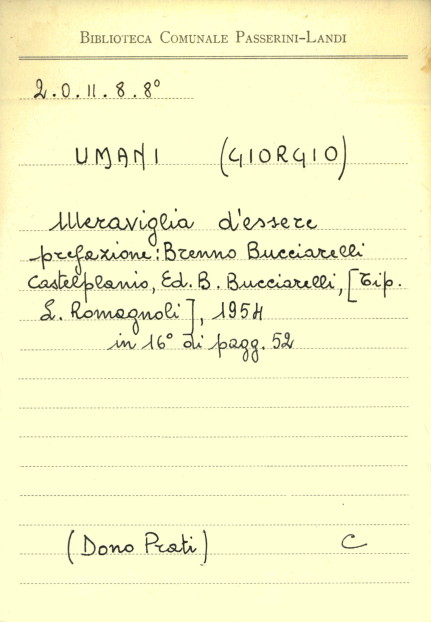 BIBLIOTECA COMUNALE PASSERINI-LANDI
2.0.11.8.8°
UMANI (GIORGIO)
Meraviglia d'essere
prefazione: Brenno Bucciarelli
Castelplanio, Ed. B. Bucciarelli, [Tip.
L. Romagnoli], 1954
in 16° di pagg. 52
(Dono Prati) C